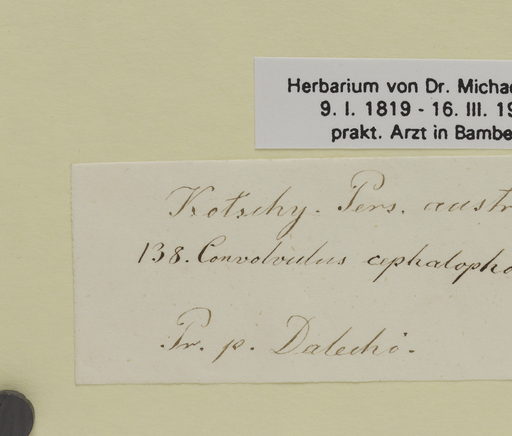 Herbarium von Dr. Michae
9. I. 1819 - 16. III. 19
prakt. Arzt in Bambe
Kotschy. Pers. austr
138. Convolvulus cephalopho
Pr. p. Dalechi.